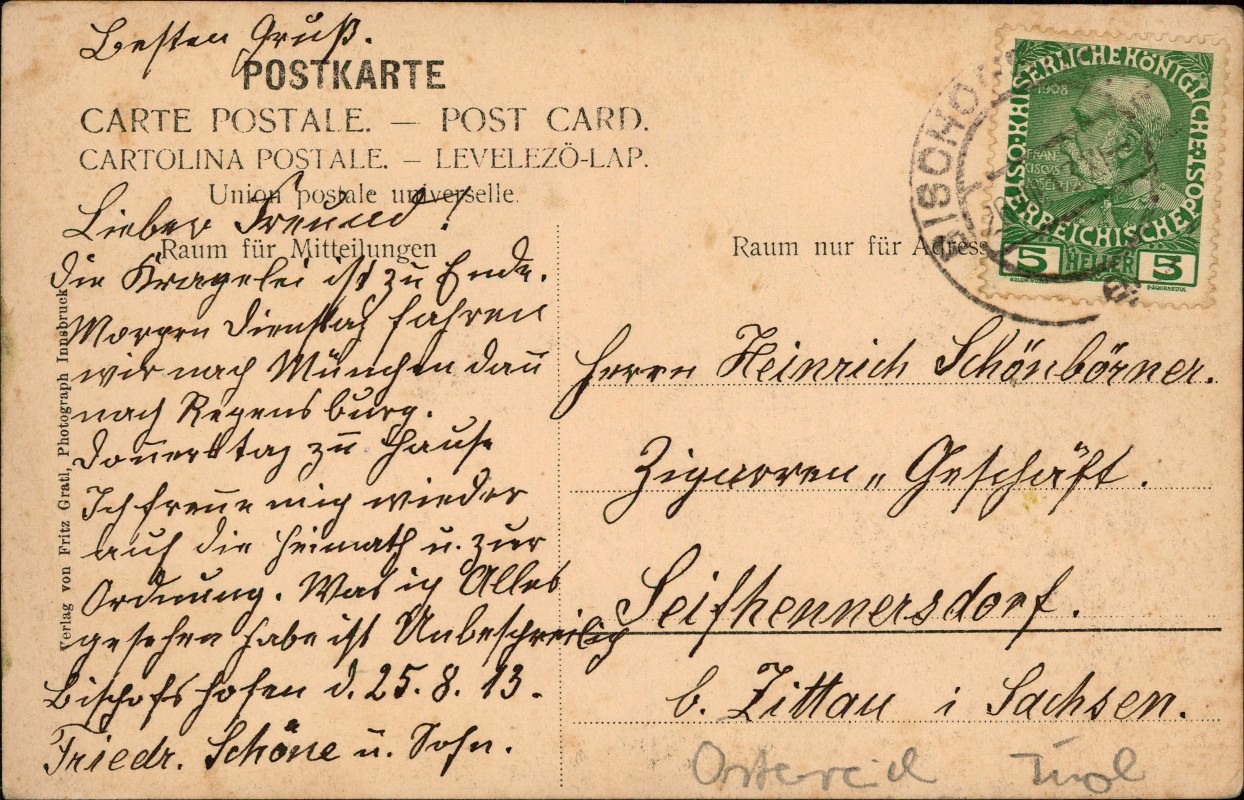 Besten Gruß.
POSTKARTE
CARTE POSTALE. — POST CARD.
CARTOLINA POSTALE. — LEVELEZÖ-LAP.
Union postale universelle.
Raum für Mitteilungen
Lieber Freund!
Die Kragelei ist zu Ende.
Morgen Dienstag fahren
wir nach München dan̄
nach Regensburg.
Don̄erstag zu Hause
Ich freue mich wieder
auf die Heimath u. zur
Ordnung. Was ich Alles
gesehen habe ist Unbeschreiblich
Bischofshofen d. 25.8.13.
Friedr. Schöne u. Sohn.
Verlag von Fritz Gratl, Photograph Innsbruck
Raum nur für Adress
BISCHOF
KAISERLICHE KÖNIGLICHE
ÖSTERREICHISCHE POST
1908
FRAN
CISCUS
JOSEPHUS
5 HELLER 5
Herrn Heinrich Schönbörner.
Zigarren „ Geschäft.
Seifhennersdorf.
b. Zittau i Sachsen.
Östereich Tirol